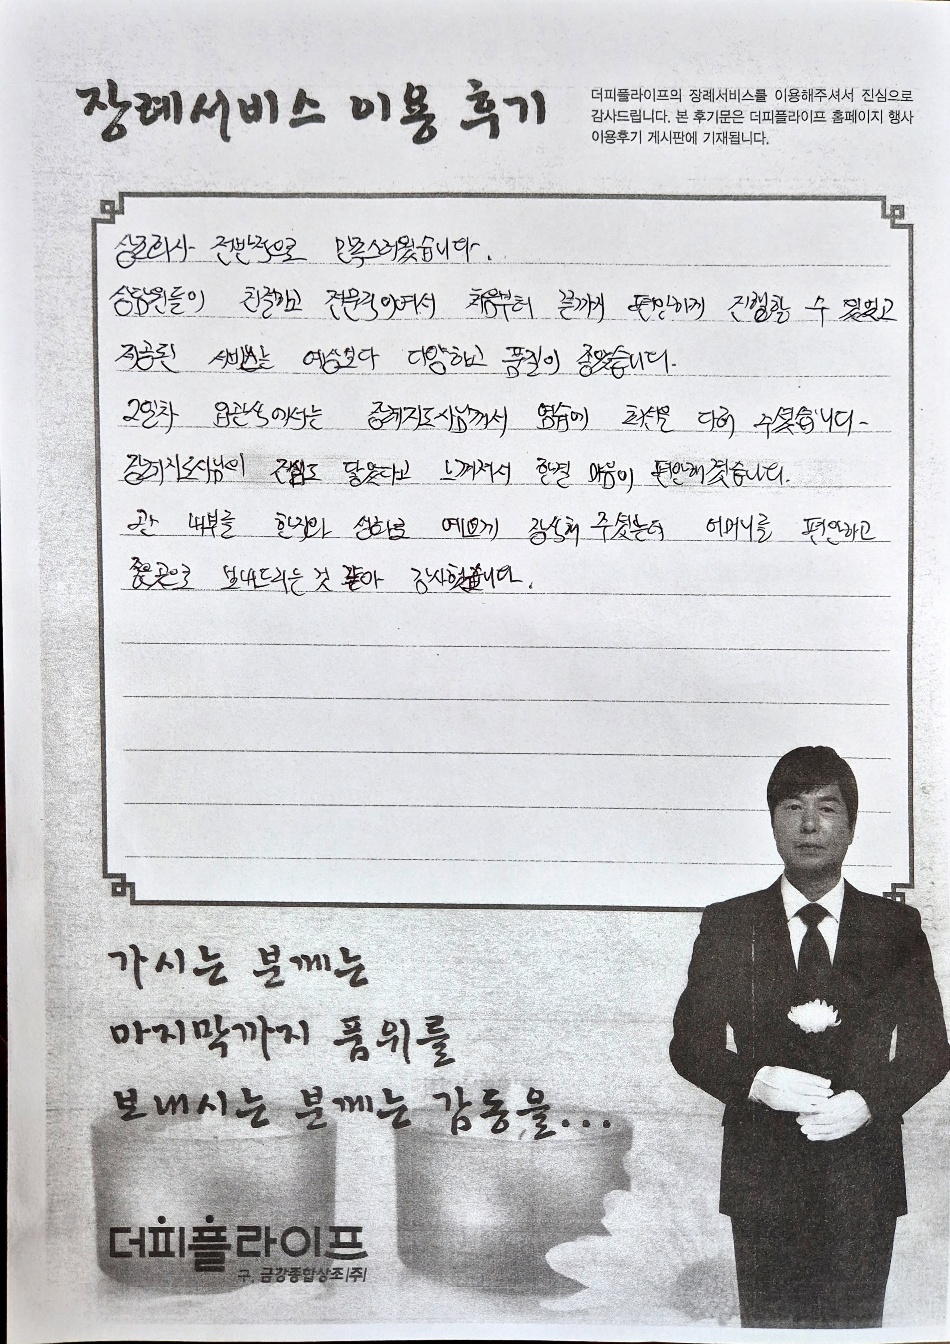 장례서비스 이용 후기
더피플라이프의 장례서비스를 이용해주셔서 진심으로
감사드립니다. 본 후기문은 더피플라이프 홈페이지 행사
이용후기 게시판에 기재됩니다.
전반적으로 만족스러웠습니다.
상담원들이 친절하고 전문적이여서 처음부터 끝까지 편안하게 진행할 수 있었고
제공된 서비스는 예상보다 다양하고 품질이 좋았습니다.
2일차 입관식에서는 장례지도사님께서 염습에 최선을 다해 주셨습니다.
장례지도사님의 진심도 닿았다고 느껴져서 한결 마음이 편안해졌습니다.
관 내부를 한지와 생화로 예쁘게 장식해 주셨는데 어머니를 편안하고
좋은곳으로 보내드리는 것 같아 감사했습니다.
가시는 분께는
마지막까지 품위를
보내시는 분께는 감동을...
더피플라이프
구. 금강종합상조(주)